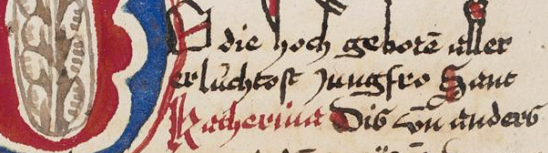 O die hoch geborē aller
erlůchtost Jungfro Sant
Katherina Dis von anders